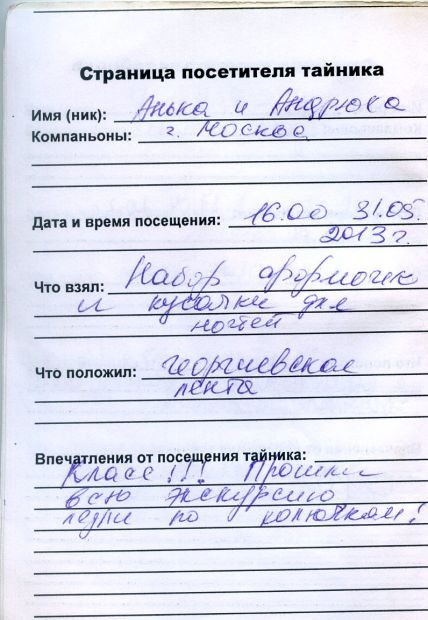 Страница посетителя тайника
Имя (ник): Анька и Андрюха
Компаньоны: г. Москва
Дата и время посещения: 16.00 31.05.
2013 г.
Что взял: Набор формочек
и кусачки для
ногтей
Что положил: Георгиевская
лента
Впечатления от посещения тайника:
Класс!!! Прошли
всю экскурсию
лезли по колючкам!